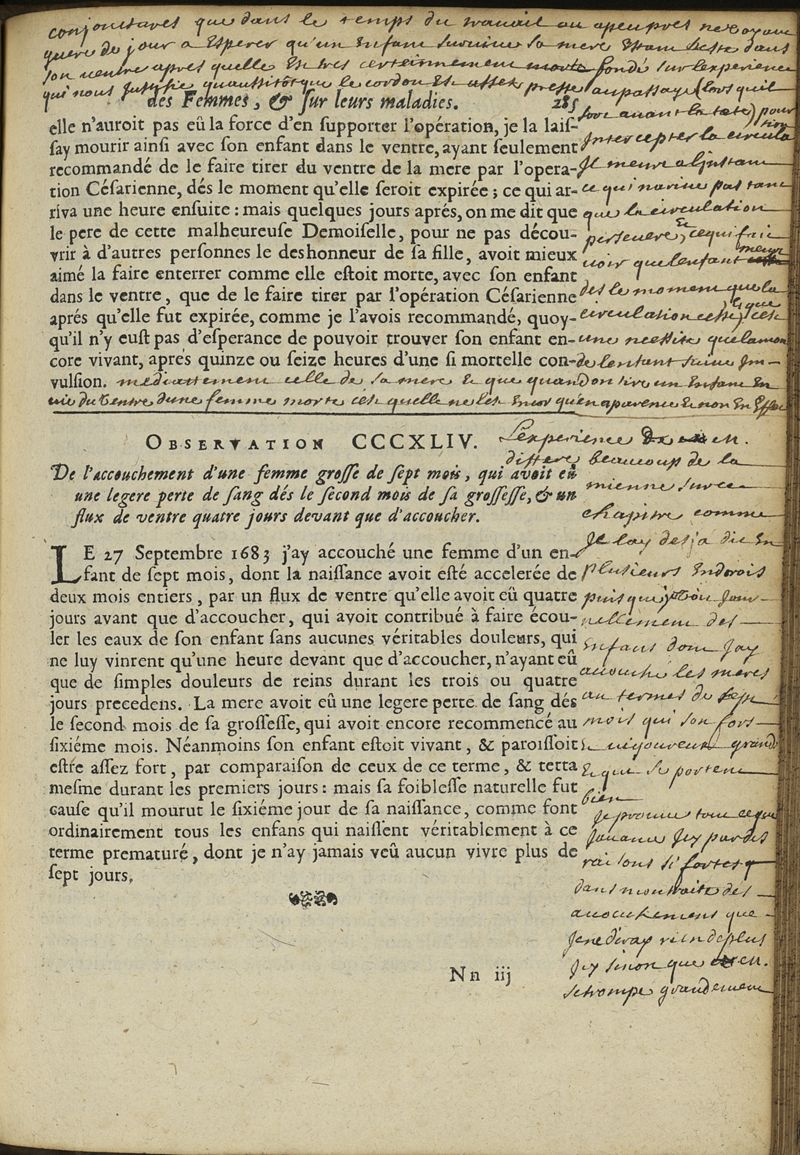 conjonctures que dans le temps du travail ou apeupres ne voyant
guere de jour a Esperer qu'un Enfant survive sa mere Etant Reste dans
son ventre apres quelle Est tres certeinement morte fondé sur lexperience
qui nous justifie quaussitôt que le cordon Est assez pressé au passage (lors quil
des Femmes, & ſur leurs maladies. 285
sort avant la tete) pour
elle n'auroit pas eû la force d'en ſupporter l'opération, je la laiſ-
ſay mourir ainſi avec ſon enfant dans le ventre, ayant ſeulement
recommandé de le faire tirer du ventre de la mere par l'opera-
tion Céſarienne, dés le moment qu'elle ſeroit expirée; ce qui ar-
riva une heure enſuite: mais quelques jours aprés, on me dit que
le pere de cette malheureuſe Demoiſelle, pour ne pas décou-
vrir à d'autres perſonnes le deshonneur de ſa fille, avoit mieux
aimé la faire enterrer comme elle eſtoit morte, avec ſon enfant
dans le ventre, que de le faire tirer par l'opération Céſarienne
aprés qu'elle fut expirée, comme je l'avois recommandé, quoy-
qu'il n'y euſt pas d'eſperance de pouvoir trouver ſon enfant en-
core vivant, aprés quinze ou ſeize heures d'une ſi mortelle con-
vulſion.
Intercepter la circula
tion
Il meurt a l'instant
ce qui n'arrive pas tant
que la circulation
persevere, & ce qui fait
voir que lenfant meurt
des le moment que la
circulation cesse, & que cest
une necessite que la mort
de lenfant suive Im
mediattement celle de sa mere & que quand on tire un Enfant En
vie du ventre dune femme morte cest quelle ne lest Encor qu'en aparence & non En Effet
OBSERVATION CCCXLIV.
De l'accouchement d'une femme groſſe de ſept mois, qui avoit eu
une legere perte de ſang dés le ſecond mois de ſa groſſeſſe, & un
flux de ventre quatre jours devant que d'accoucher.
LE 27 Septembre 1683 j'ay accouché une femme d'un en-
fant de ſept mois, dont la naiſſance avoit eſté accelerée de
deux mois entiers, par un flux de ventre qu'elle avoit eû quatre
jours avant que d'accoucher, qui avoit contribué à faire écou-
ler les eaux de ſon enfant ſans aucunes véritables douleurs, qui
ne luy vinrent qu'une heure devant que d'accoucher, n'ayant eû
que de ſimples douleurs de reins durant les trois ou quatre
jours precedens. La mere avoit eû une legere perte de ſang dés
le ſecond mois de ſa groſſeſſe, qui avoit encore recommencé au
ſixiéme mois. Néanmoins ſon enfant eſtoit vivant, & paroiſſoit
eſtre aſſez fort, par comparaiſon de ceux de ce terme, & tetta
meſme durant les premiers jours: mais ſa foibleſſe naturelle fut
cauſe qu'il mourut le ſixiéme jour de ſa naiſſance, comme font
ordinairement tous les enfans qui naiſſent véritablement à ce
terme prematuré, dont je n'ay jamais veû aucun vivre plus de
ſept jours.
Lexperience
differe beaucoup de la
mienne sur ce
chapitre comme
Je lay desja dit En
plusieurs Endroits
puis que
nellement des
Enfans dont Jay
accouché les meres
au termes de sept
mois qui sont forts
& vigoureux grands
& que se portent
bien
Je prouve tout ce que
Javance Icy par des
raisons si fortes
dans mon traite des
accouchemens que
Je ne diray rien de plus
Icy sinon que
se trompe grandement
Nn iij